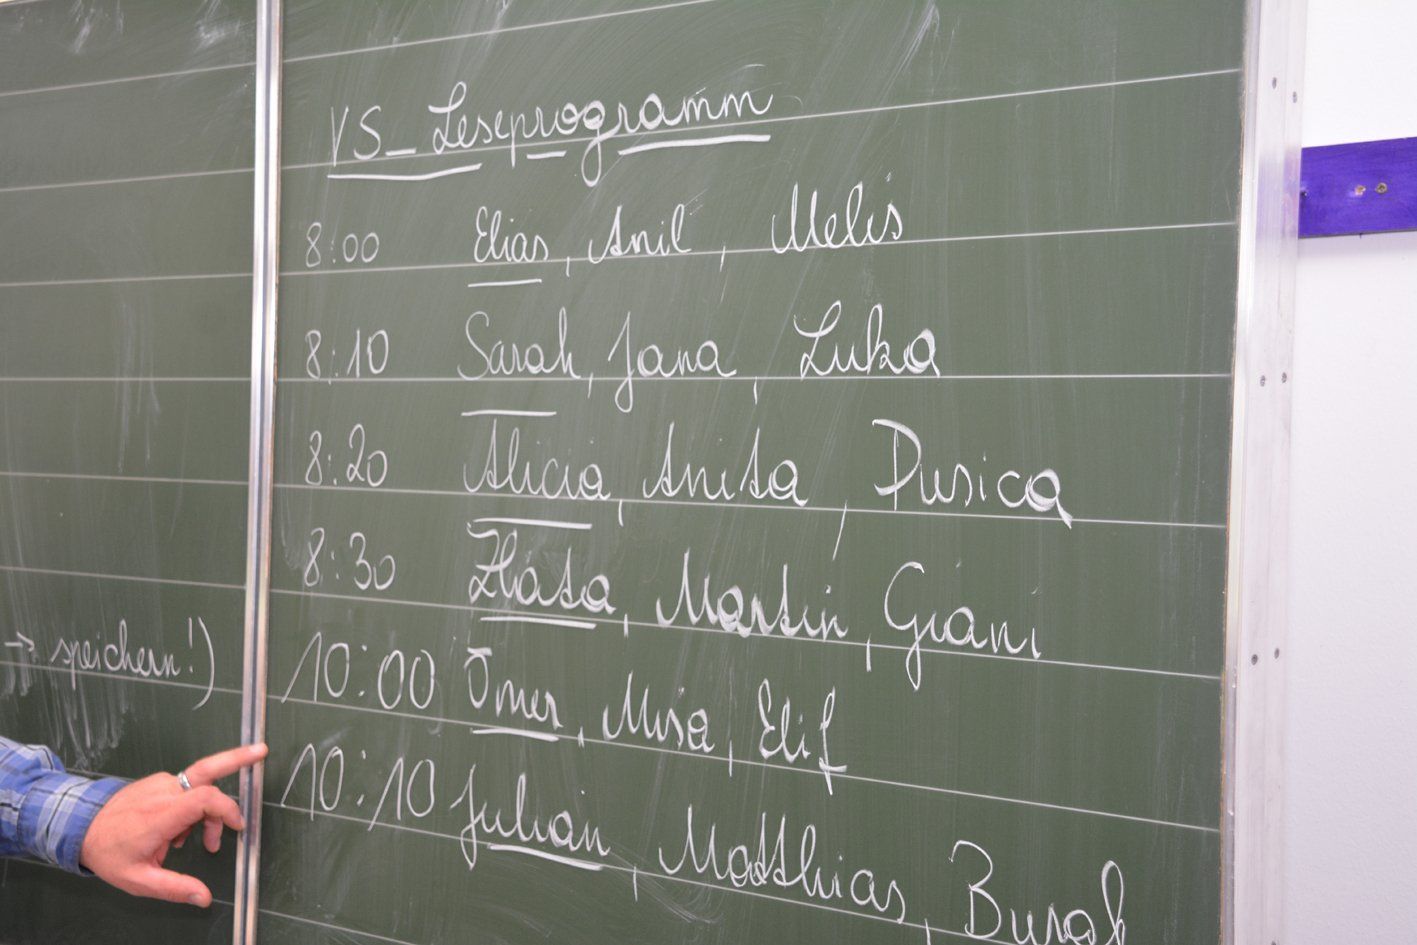 VS_Leseprogramm
8:00 Elias, Anil, Melis
8:10 Sarah, Jana, Luka
8:20 Alicia, Anita, Dusica
8:30 Zlata, Martin, Giani
10:00 Ömer, Misa, Elif
10:10 Julian, Matthias, Burak
→ speichern!)